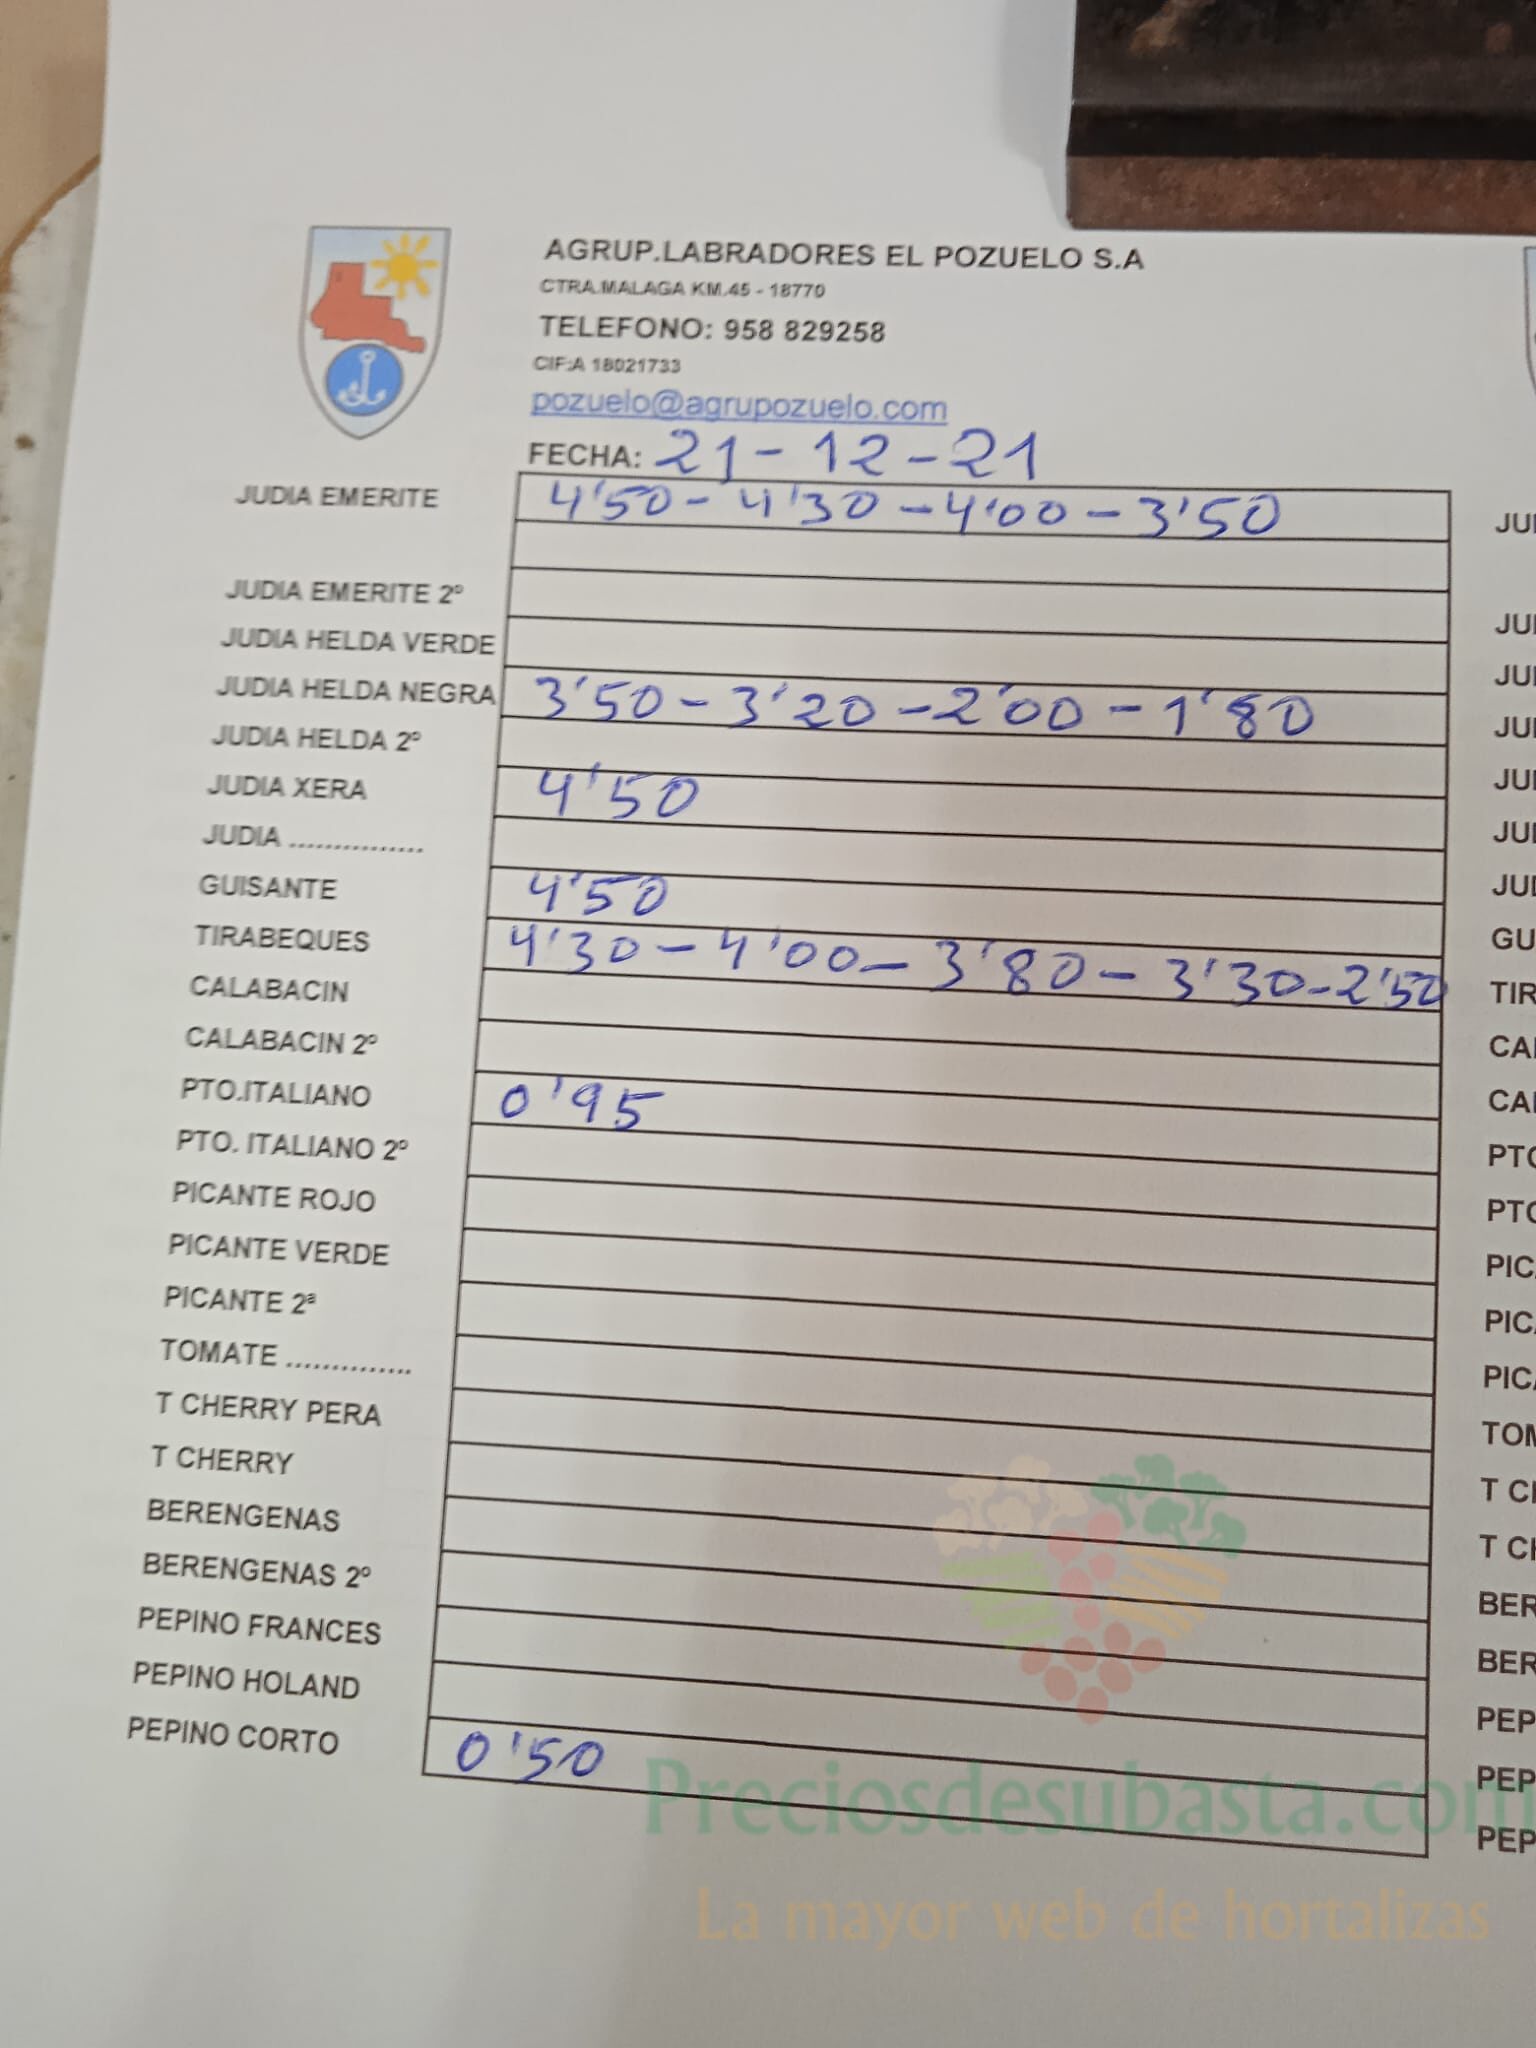 AGRUP.LABRADORES EL POZUELO S.A
CTRA.MALAGA KM.45 - 18770
TELEFONO: 958 829258
CIF:A 18021733
pozuelo@agrupozuelo.com
FECHA: 21-12-21
JUDIA EMERITE 4'50 - 4'30 - 4'00 - 3'50
JUDIA EMERITE 2º
JUDIA HELDA VERDE
JUDIA HELDA NEGRA 3'50 - 3'20 - 2'00 - 1'80
JUDIA HELDA 2º
JUDIA XERA 4'50
JUDIA ...............
GUISANTE 4'50
TIRABEQUES 4'30 - 4'00 - 3'80 - 3'30 - 2'50
CALABACIN
CALABACIN 2º
PTO.ITALIANO 0'95
PTO. ITALIANO 2º
PICANTE ROJO
PICANTE VERDE
PICANTE 2ª
TOMATE ..............
T CHERRY PERA
T CHERRY
BERENGENAS
BERENGENAS 2º
PEPINO FRANCES
PEPINO HOLAND
PEPINO CORTO 0'50
JU
JU
JU
JU
JU
JU
JU
GU
TIR
CA
CA
PTO
PTO
PIC
PIC
PIC
TOM
T C
T C
BER
BER
PEP
PEP
PEP
Preciosdesubasta.com
La mayor web de hortalizas